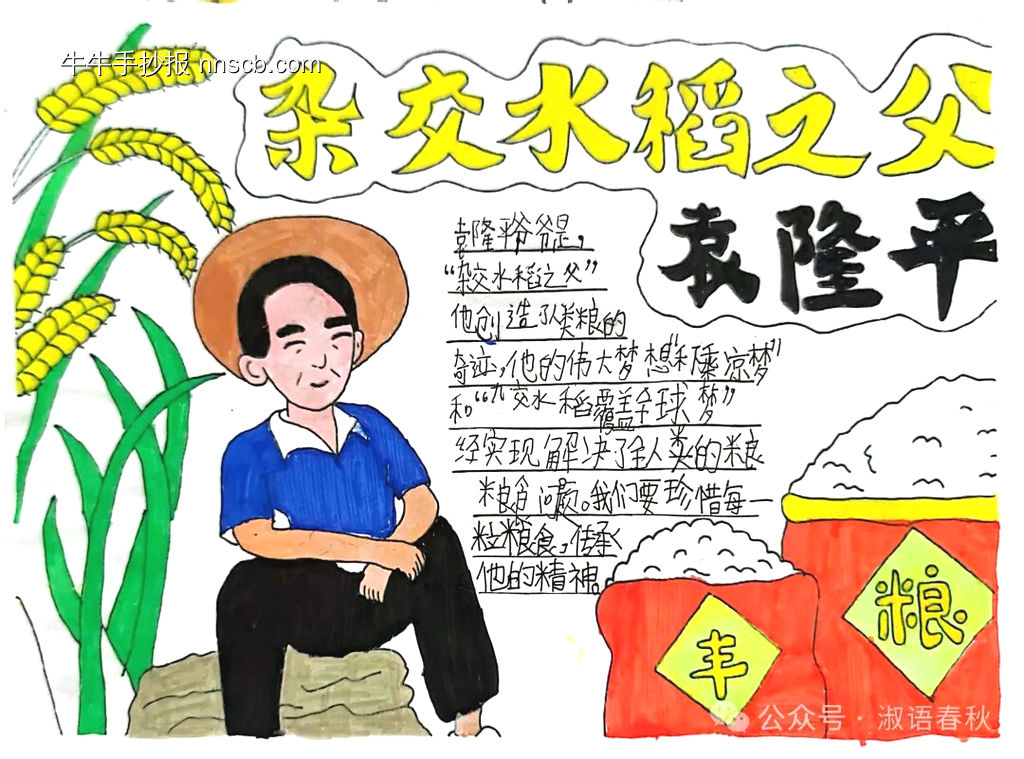 牛牛手抄报 nnscb.com
杂交水稻之父
袁隆平
袁隆平爷爷是,
“杂交水稻之父”
他创造了人类粮的
奇迹,他的伟大梦想“禾下乘凉梦”
和“杂交水稻覆盖全球梦”
经实现解决了全人类的粮
粮食问题。我们要珍惜每一
粒粮食,传承
他的精神
粮
丰
公众号·淑语春秋